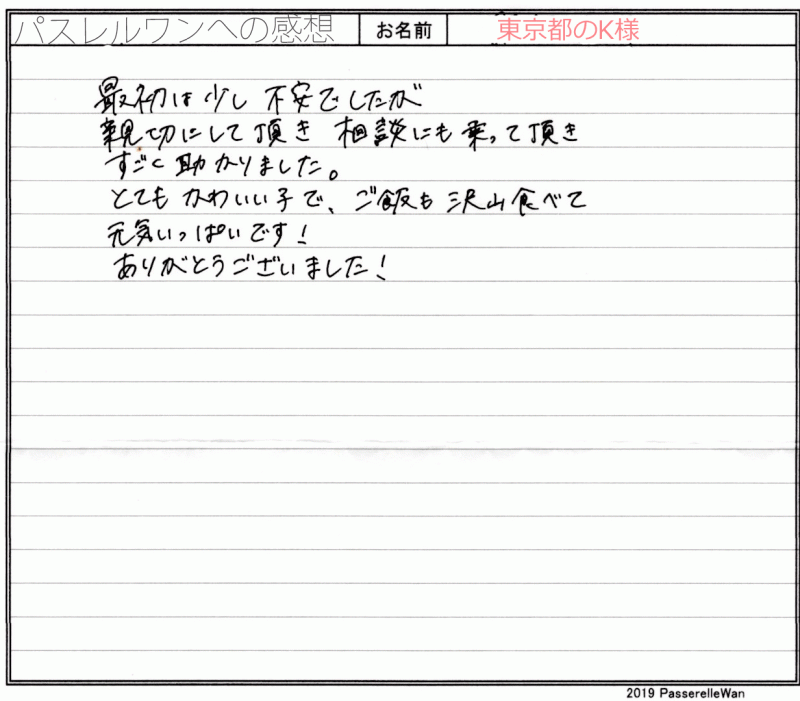 パスレルワンへの感想 お名前 東京都のK様
最初は少し不安でしたが
親切にして頂き 相談にも乗って頂き
すごく助かりました。
とてもかわいい子で、ご飯も沢山食べて
元気いっぱいです!
ありがとうございました!
2019 PasserelleWan